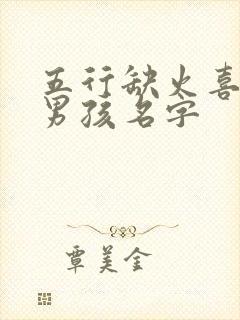 五行缺火喜
男孩名字
覃美金